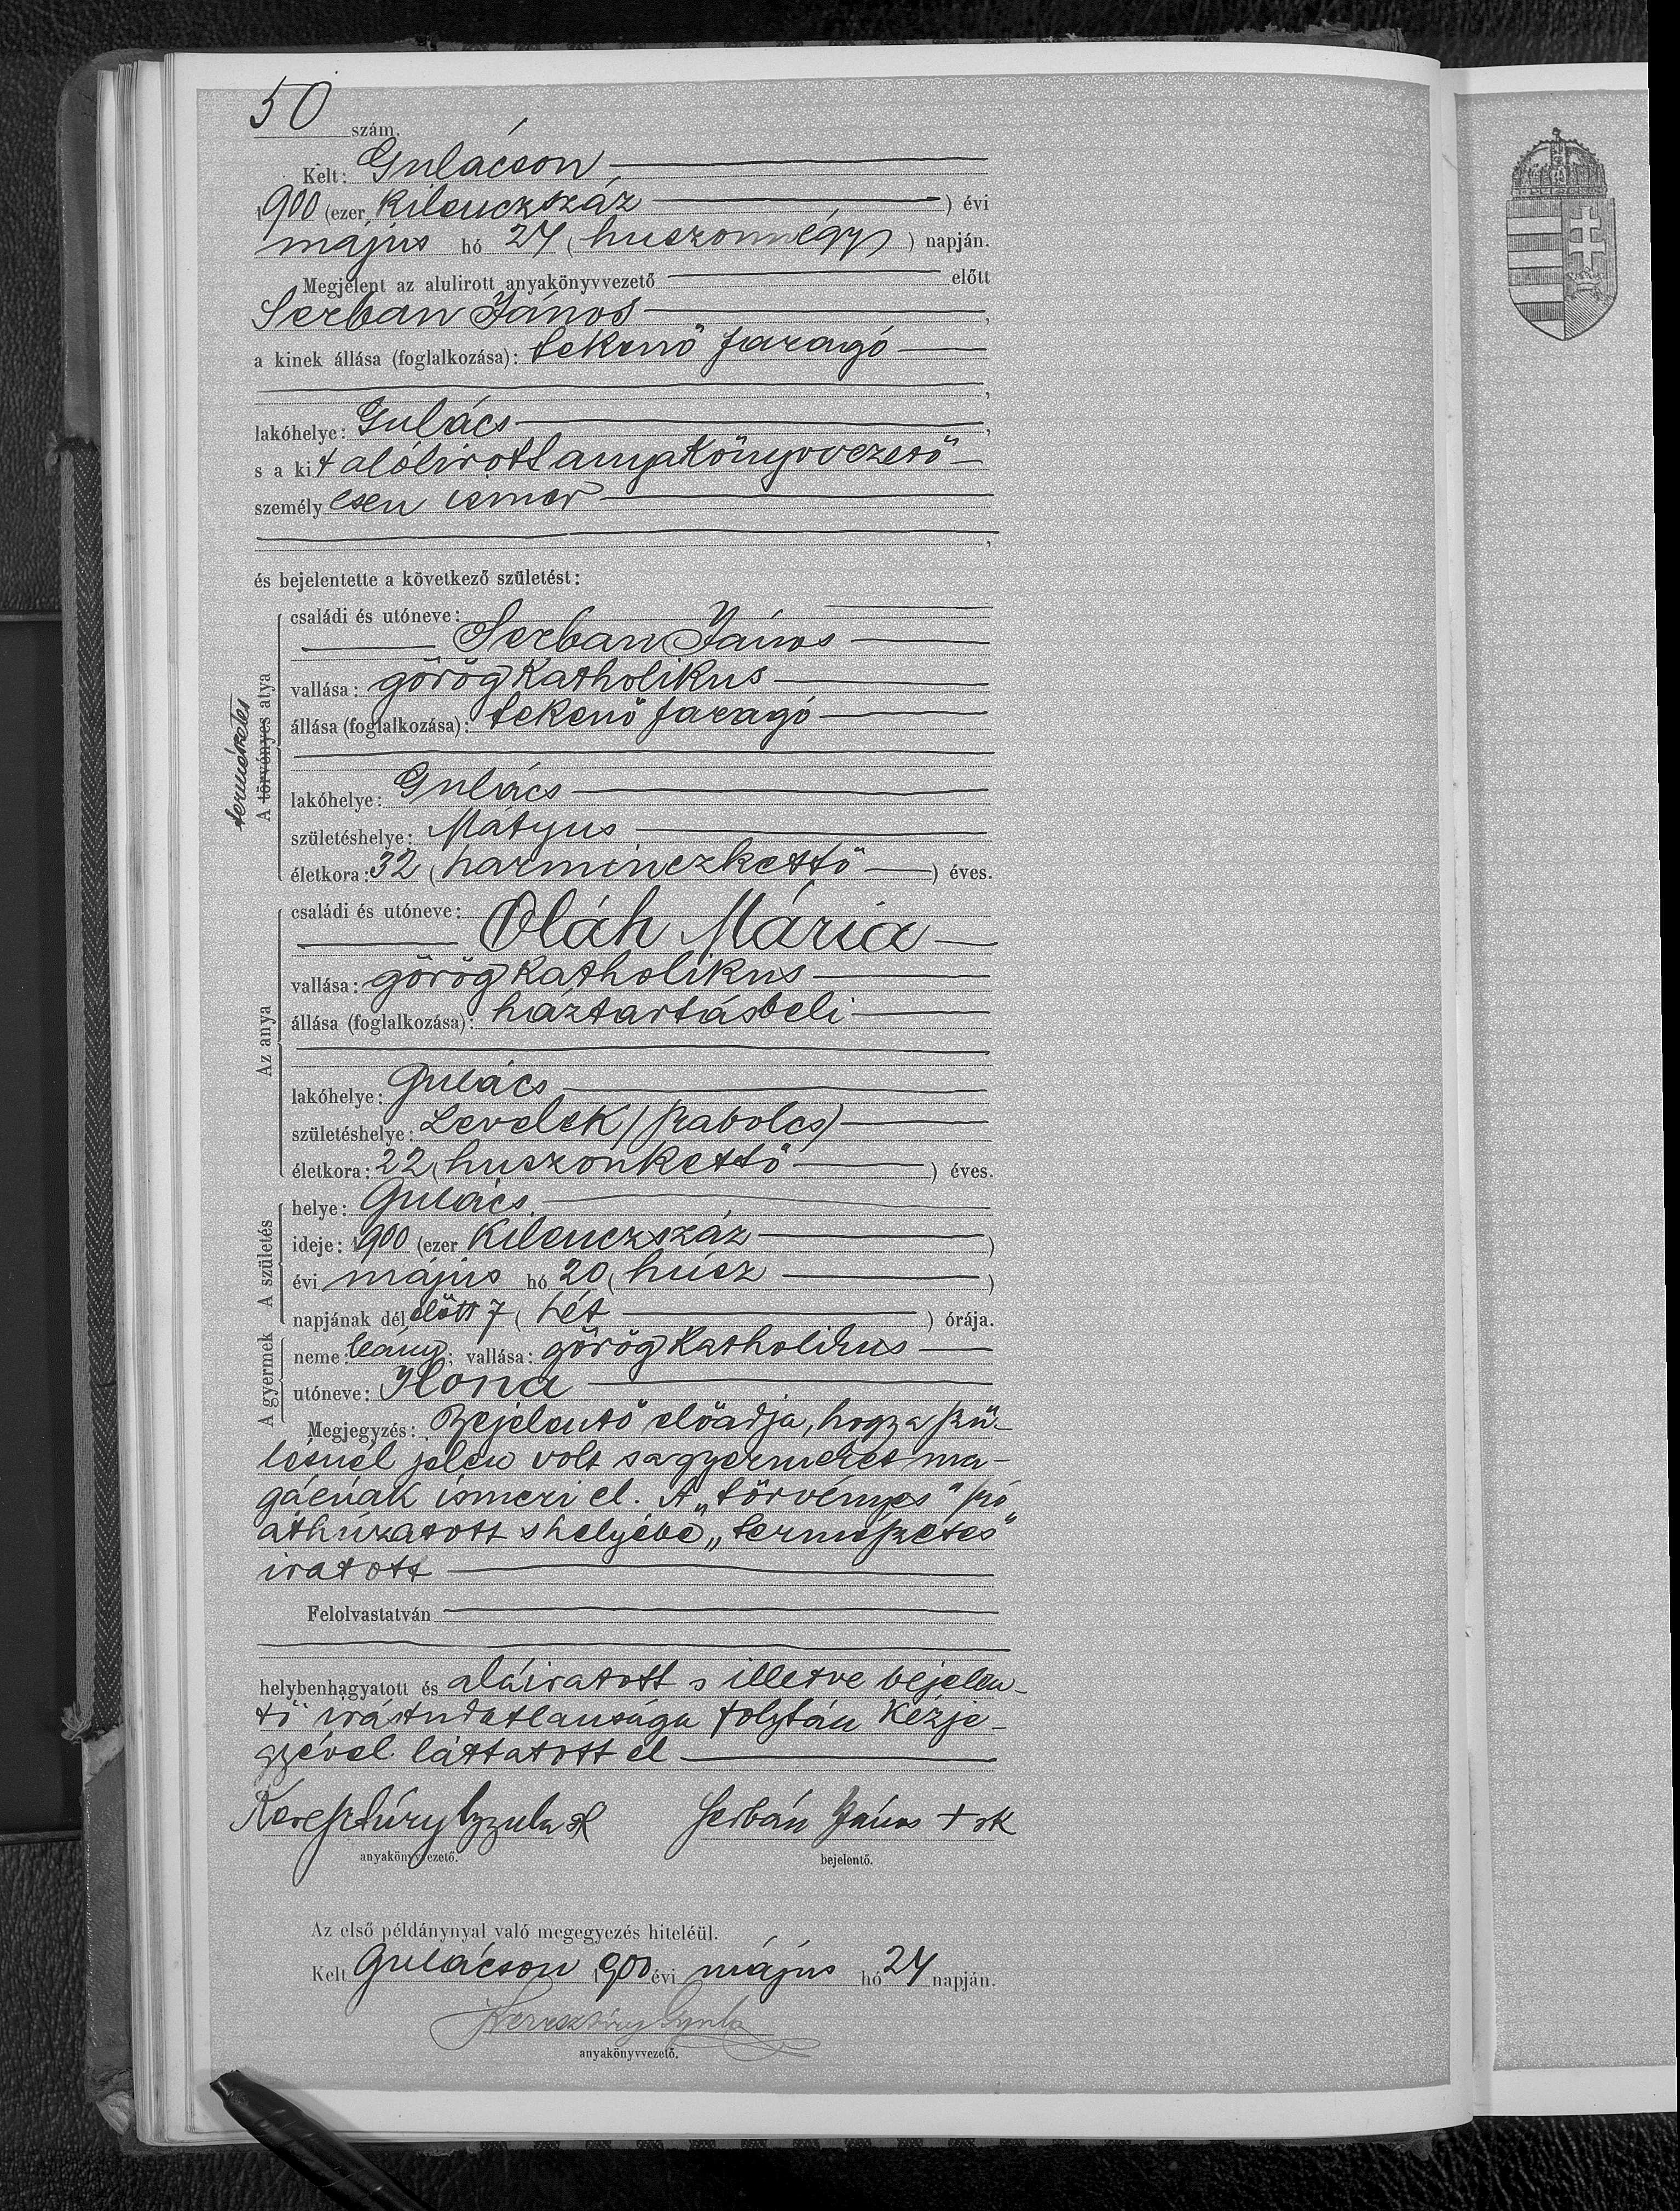 50 szám.
Kelt: Gulácson,
1900 (ezer kilenczszáz ) évi
május hó 24 ( huszonnégy ) napján.
Megjelent az alulirott anyakönyvvezető előtt
Serban János ,
a kinek állása (foglalkozása): tekenő faragó
,
lakóhelye: Gulács ,
s a kit alólirott anyakönyvvezető
személyesen ismer
,
és bejelentette a következő születést:
természetes
A törvényes atya
családi és utóneve:
Serban János
vallása: görög katholikus
állása (foglalkozása): tekenő faragó
lakóhelye: Gulács
születéshelye: Mátyus
életkora: 32 ( harminczkettő ) éves.
Az anya
családi és utóneve:
Oláh Mária
vallása: görög katholikus
állása (foglalkozása): háztartásbeli
lakóhelye: Gulács
születéshelye: Levelek (Szabolcs)
életkora: 22 ( huszonkettő ) éves.
A születés
helye: Gulács
ideje: 1900 (ezer kilenczszáz )
évi május hó 20 ( húsz )
napjának délelőtt 7 ( hét ) órája.
A gyermek
neme: leány; vallása: görög katholikus
utóneve: Ilona
Megjegyzés: Bejelentő előadja, hogy a szü-
lésnél jelen volt s a gyermeket ma-
gáénak ismeri el. A „törvényes" szó
áthúzatott s helyébe „természetes"
iratott
Felolvastatván
helybenhagyatott és aláiratott s illetve bejelen-
tő irástudatlansága folytán kézje-
gyével láttatott el
Keresztúry Gyula sk Serbán János + sk
anyakönyvvezető. bejelentő.
Az első példánynyal való megegyezés hiteléül.
Kelt Gulácson 1900 évi május hó 24 napján.
Keresztúry Gyula
anyakönyvvezető.